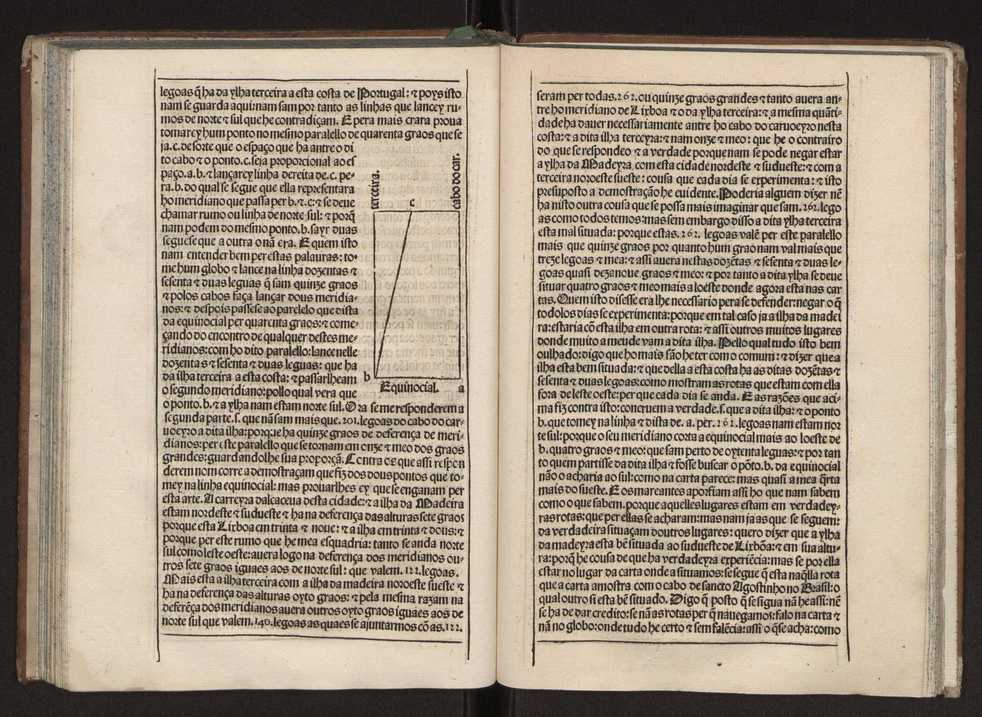 legoas q̃ ha da ylha terceira a esta costa de Portugal: ⁊ poys isto
nam se guarda aqui: nam sam por tanto as linhas que lancey ru-
mos de norte ⁊ sul que he contradiçam. E pera mais crara proua
tomarey hum ponto no mesmo parallelo de quarenta graos que se
ja.c. de sorte que o espaço que ha antre o di
to cabo ⁊ o ponto.c. seja proporcional ao es
paço.a.b. ⁊ lançarey linha dereita de.c. pe-
ra.b. do qual se segue que ella representara
ho meridiano que passa per b.⁊.c: ⁊ se deue
chamar rumo ou linha de norte sul: ⁊ porq̃
nam podem do mesmo ponto.b. sayr duas
segue se que a outra o nã era. E quem isto
nam entender bem per estas palauras: to-
me hum globo ⁊ lance na linha dozentas ⁊
sesenta ⁊ duas leguas q̃ sam quinze graos
⁊ polos cabos faça lançar dous meridia-
nos: ⁊ despois passe se ao parelelo que dista
da equinocial per quarenta graos: ⁊ come-
çando do encontro de qualquer destes me-
ridianos: com ho dito parallelo: lance nelle
dozentas ⁊ sesenta ⁊ duas leguas: que ha
da ilha terceira a esta costa: ⁊ passarlheam
o segundo meridiano: pollo qual vera que
o ponto.b. ⁊ a ylha nam estam norte sul. Ora se me responderem a
segunda parte.s. que nã sam mais que.201. legoas do cabo do car-
uoeyro a dita ilha: porque ha quinze graos de deferença de meri-
dianos: per este parallelo que se tornam em onze ⁊ meo dos graos
grandes: guardando lhe sua proporçã. Contra os que assi respon
derem nom corre a demostraçam que fiz dos dous pontos que to-
mey na linha equinocial: mas prouarlhes ey que se enganam per
esta arte. A carreyra dalcaceua desta cidade: ⁊ a ilha da Madeira
estam nordeste ⁊ sudueste ⁊ ha na deferença das alturas sete graos
porque esta Lixboa em trinta ⁊ noue: ⁊ a ilha em trinta ⁊ dous: ⁊
porque per este rumo que he mea esquadria: tanto se anda norte
sul como leste oeste: auera logo na deferença dos meridianos ou-
tros sete graos iguaes aos de norte sul: que valem.122. legoas.
Mais esta a ilha terceira com a ilha da madeira noroeste sueste ⁊
ha na deferença das alturas oyto graos: ⁊ pela mesma razam na
deferẽça dos meridianos auera outros oyto graos iguaes aos de
norte sul que valem.140. legoas as quaes se ajuntarmos cõ as.122.
terceira.
c
cabo do car.
b
Equinocial.
a
seram per todas.262. ou quinze graos grandes ⁊ tanto auera an-
tre ho meridiano de Lixboa ⁊ o da ylha terceira: ⁊ a mesma quãti-
dade ha dauer necessariamente antre ho cabo do caruoeyro nesta
costa: ⁊ a dita ilha terceyra: ⁊ nam onze ⁊ meo: que he o contrairo
do que se respondeo ⁊ a verdade porque nam se pode negar estar
a ylha da Madeyra, com esta cidade nordeste ⁊ sudueste: ⁊ com a
terceira noroeste sueste: cousa que cada dia se experimenta: ⁊ isto
presuposto a demostração he euidente. Poderia alguem dizer nẽ
ha nisto outra cousa que se possa mais imaginar que sam.262. lego
as como todos temos mas sem embargo disso a dita ylha terceira
esta mal situada: porque estas.262. legoas valẽ per este paralello
mais que quinze graos por quanto hum grao nam val mais que
treze legoas ⁊ mea: ⁊ assi auera nestas dozẽtas ⁊ sesenta ⁊ duas le-
goas quasi dezanoue graos ⁊ meo: ⁊ por tanto a dita ylha se deue
situar quatro graos ⁊ meo mais a loeste donde agora esta nas car
tas. Quem isto disesse era lhe necessario pera se defender: negar o q̃
todolos dias se experimenta: porque em tal caso ja a ilha da madei
ra: estaria cõ esta ilha em outra rota: ⁊ assi outros muitos lugares
donde muito a meude vam a dita ilha. Pello qual tudo isto bem
oulhado: digo que ho mais são he ter com o comum: ⁊ dizer que a
ilha esta bem situada: ⁊ que della a esta costa ha as ditas dozẽtas ⁊
sesenta ⁊ duas legoas: como mostram as rotas que estam com ella
fora de leste oeste: per que cada dia se anda. E as razões que aci-
ma fiz contra isto: concruem a verdade.s. que a dita ilha: ⁊ o ponto
b. que tomey na linha ⁊ dista de. a. per.262. legoas nam estam nor
te sul: porque o seu meridiano corta a equinocial mais ao loeste de
b. quatro graos ⁊ meo: que sam perto de oytenta leguas: ⁊ por tan
to quem partisse da dita ilha ⁊ fosse buscar o põto.b. da equinocial
não o acharia ao sul: como na carta parece: mas quasi a mea q̃rta
mais do sueste. E os mareantes aporfiam assi ho que nam sabem
como o que sabem. porque aquelles lugares estam em verdadey-
ras rotas: que per ellas se acharam: mas nam ja as que se seguem:
da verdadeira situaçam doutros lugares: quero dizer que a ylha
da madeyra esta bẽ situada ao sudueste de Lixbõa: ⁊ em sua altu-
ra: porq̃ he cousa de que ha verdadeyra experiẽcia: mas se por ella
estar no lugar da carta onde a situamos: se segue q̃ esta naq̃lla rota
que a carta amostra com o cabo de sancto Agostinho no Brasil: o
qual outro si esta bẽ situado. Digo q̃ posto q̃ se sigua nã he assi: nẽ
se ha de dar credito: se nã as rotas per q̃ nauegamos: falo na carta ⁊
nã no globo: onde tudo he certo ⁊ sem falẽcia: assi o q̃ se acha: como